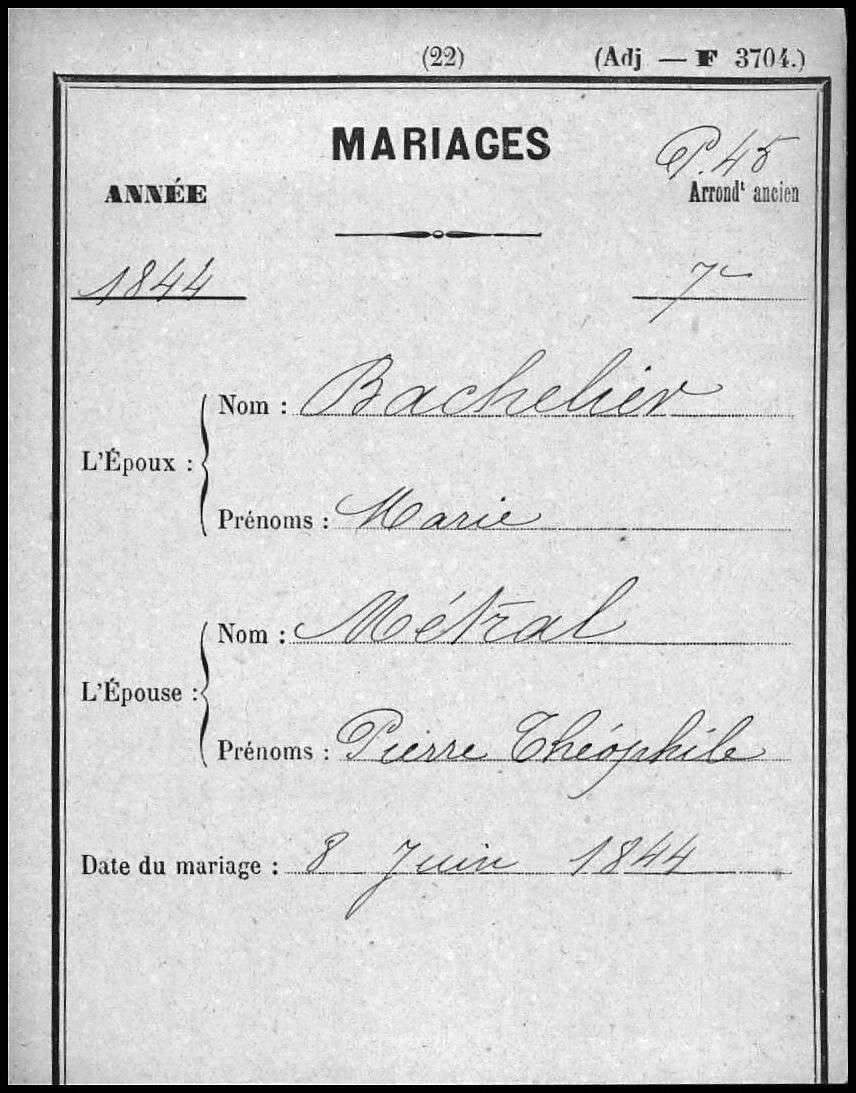 (22) (Adj — F 3704.)
MARIAGES
P. 45
ANNÉE Arrondt ancien
1844 7e
L'Époux :
Nom : Bachelier
Prénoms : Marie
L'Épouse :
Nom : Métral
Prénoms : Pierre Théophile
Date du mariage : 8 Juin 1844